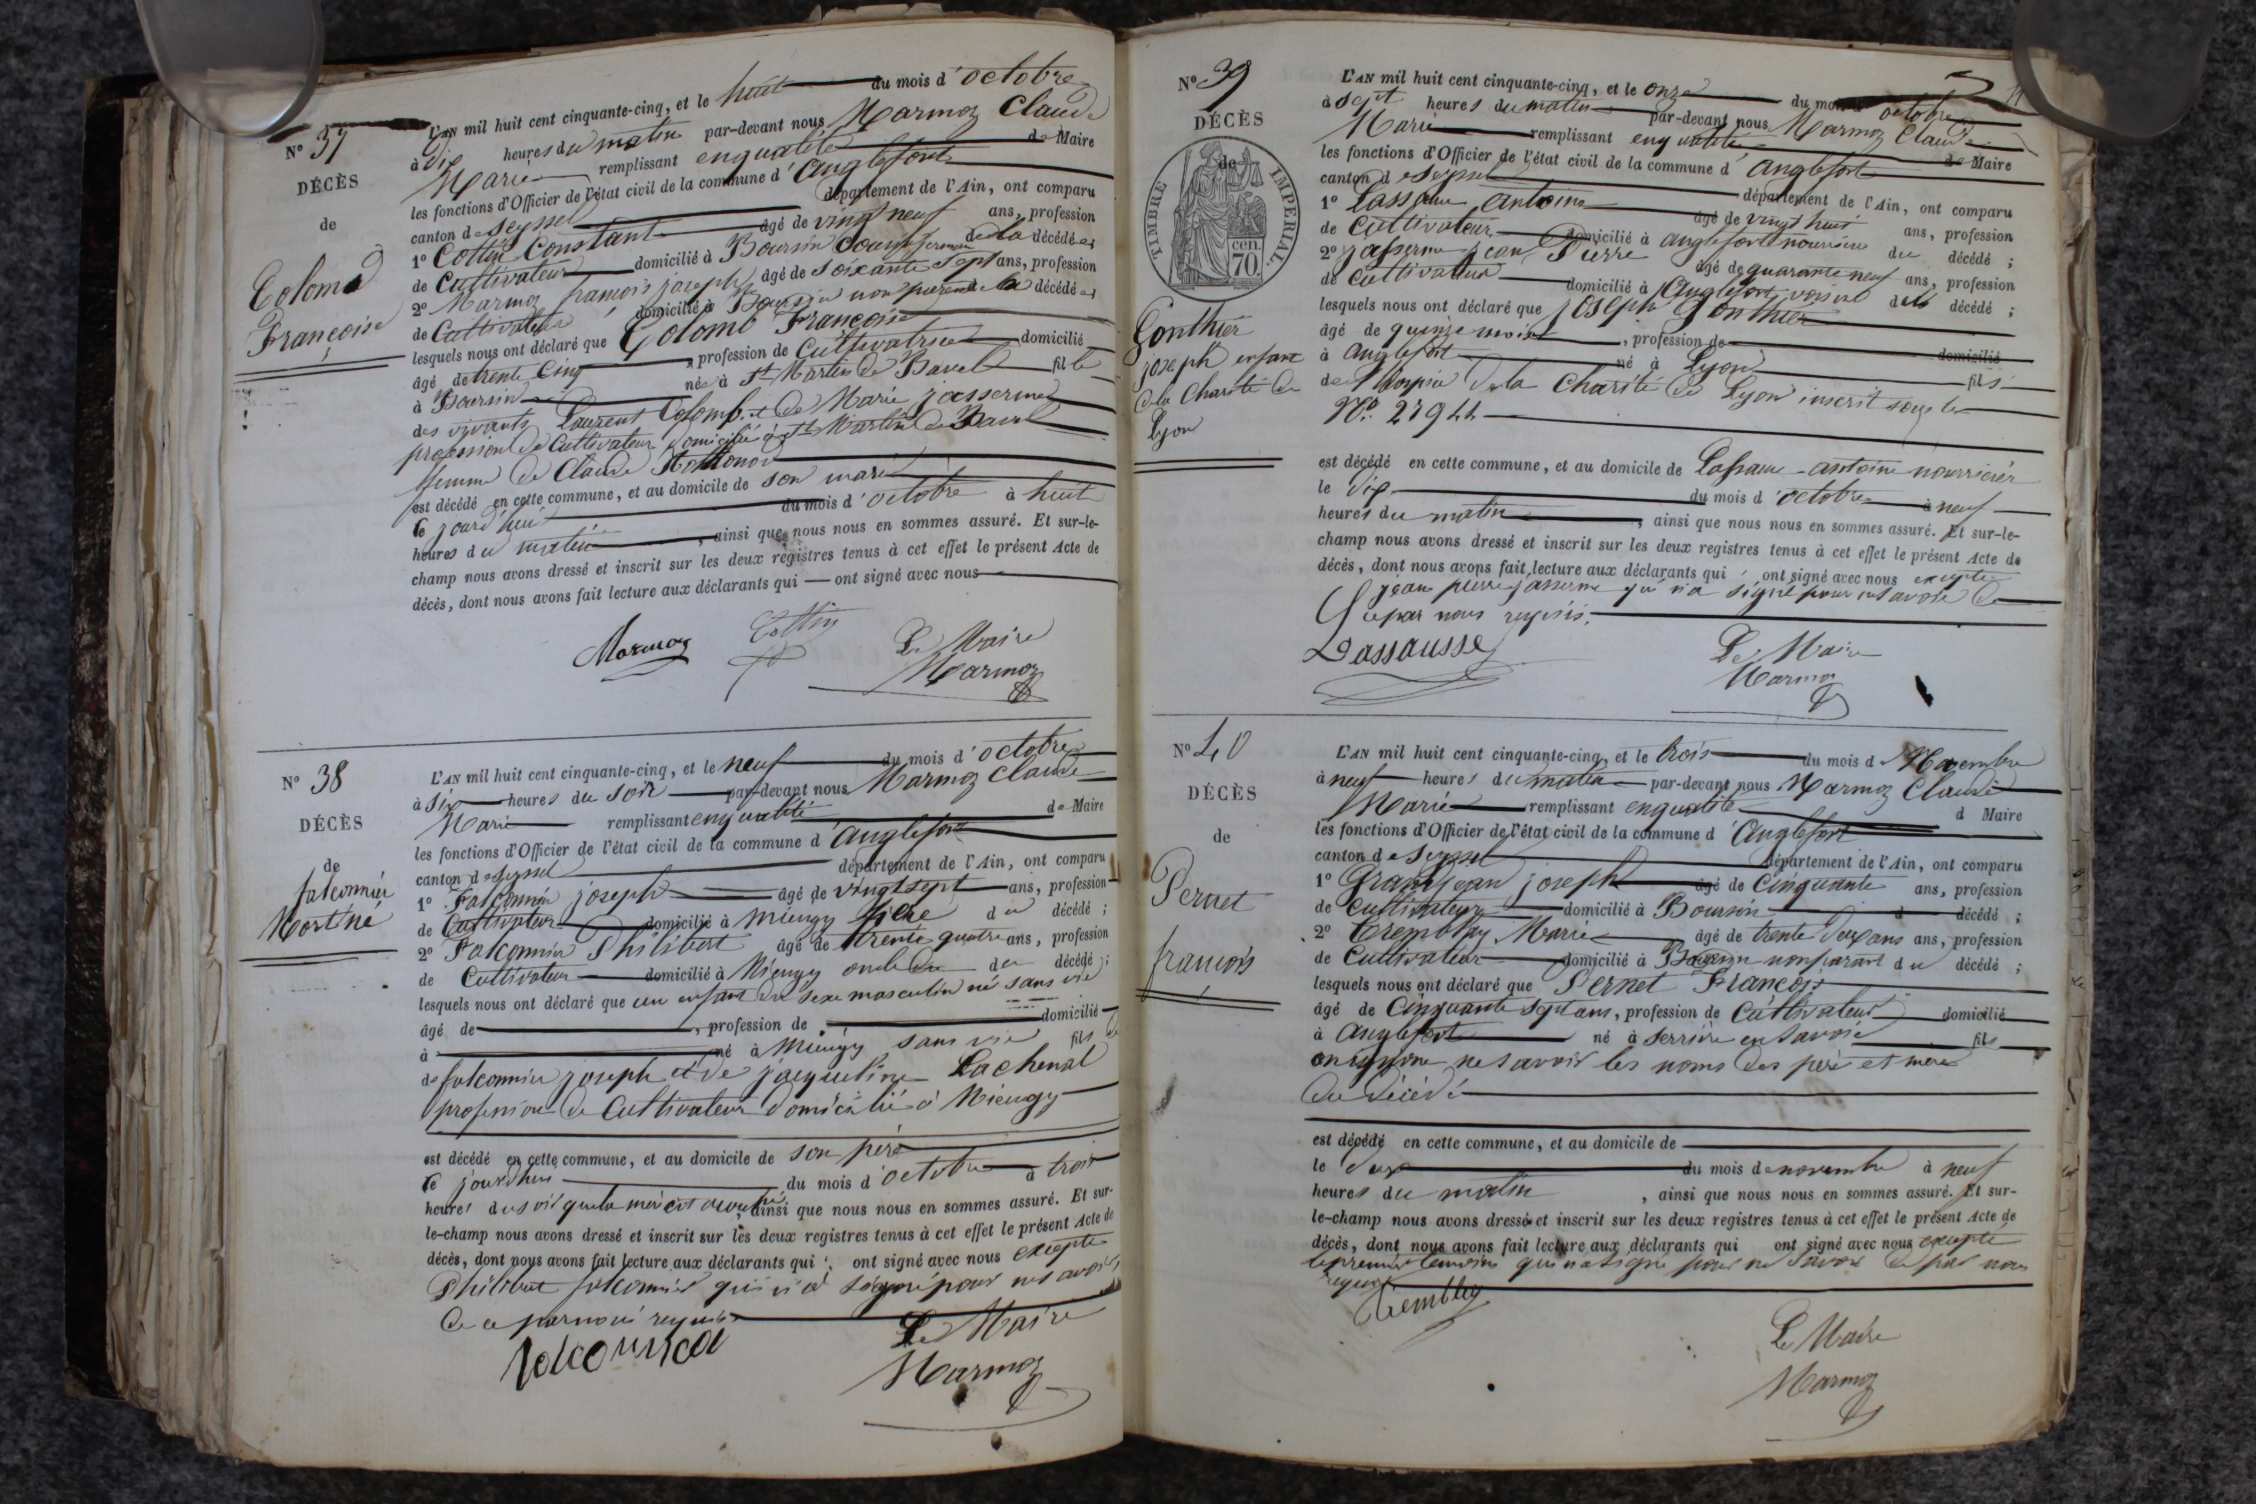 N° 37
DÉCÈS
de
Colomb
Françoise
L'AN mil huit cent cinquante-cinq, et le huit du mois d'octobre
à dix heures du matin par-devant nous Marmoz Claude
Marie remplissant en qualité de Maire
les fonctions d'Officier de l'état civil de la commune d'anglefort
canton de Seyssel département de l'Ain, ont comparu
1° Cottin Constant âgé de vingt neuf ans, profession
de Cultivateur domicilié à Boursin de la décédée
2° Marmoz françois joseph âgé de soixante sept ans, profession
de Cultivateur domicilié à Boursin non parent de la décédée
lesquels nous ont déclaré que Colomb Françoise
âgé de trente cinq, profession de Cultivatrice domicilié
à Boursin née à St Martin de Bavel fille
des vivants Laurent Colomb et de Marie jasserme
profession de Cultivateur domicilié à St Martin de Bavel
femme de Claude
est décédé en cette commune, et au domicile de son mari
le jourd'hui du mois d'octobre à huit
heures du matin, ainsi que nous nous en sommes assuré. Et sur-le-
champ nous avons dressé et inscrit sur les deux registres tenus à cet effet le présent Acte de
décès, dont nous avons fait lecture aux déclarants qui ont signé avec nous
Marmoz Cottin Le Maire
Marmoz
N° 38
DÉCÈS
de
falconnier
Mort né
L'AN mil huit cent cinquante-cinq, et le neuf du mois d'octobre
à six heures du soir par-devant nous Marmoz Claude
Marie remplissant en qualité de Maire
les fonctions d'Officier de l'état civil de la commune d'anglefort
canton de Seyssel département de l'Ain, ont comparu
1° Falconnier joseph âgé de vingt sept ans, profession
de Cultivateur domicilié à Mieugy père du décédé ;
2° Falconnier Philibert âgé de trente quatre ans, profession
de Cultivateur domicilié à Mieugy oncle du du décédé ;
lesquels nous ont déclaré que un enfant du sexe masculin né sans vie
âgé de , profession de domicilié
à né à Mieugy sans vie fils
de falconnier joseph et de jacqueline Lachenal
profession de Cultivateur domicilié à Mieugy
est décédé en cette commune, et au domicile de son père
le jourd'hui du mois d'octobre à trois
heures du soir que la mère est accouché, ainsi que nous nous en sommes assuré. Et sur-
le-champ nous avons dressé et inscrit sur les deux registres tenus à cet effet le présent Acte de
décès, dont nous avons fait lecture aux déclarants qui ont signé avec nous excepté
Philibert falconnier qui n'a signé pour ne savoir
de ce par nous requis
Le Maire
Marmoz
N° 39
DÉCÈS
de
TIMBRE IMPERIAL.
70. cen.
Gonthier
joseph enfant
de la Charité de
Lyon
L'AN mil huit cent cinquante-cinq, et le onze du mois d'octobre
à sept heures du matin par-devant nous Marmoz Claude
Marie remplissant en qualité de Maire
les fonctions d'Officier de l'état civil de la commune d'anglefort
canton de Seyssel département de l'Ain, ont comparu
1° Lassausse antoine âgé de vingt huit ans, profession
de Cultivateur domicilié à anglefort nourricier du décédé ;
2° jasserme jean Pierre âgé de quarante neuf ans, profession
de Cultivateur domicilié à anglefort voisin du décédé ;
lesquels nous ont déclaré que joseph Gonthier
âgé de quinze mois, profession de domicilié
à anglefort né à Lyon fils
de l'hospice de la Charité de Lyon inscrit sous le
N°. 27944
est décédé en cette commune, et au domicile de Lassausse antoine nourricier
le dix du mois d'octobre à neuf
heures du matin, ainsi que nous nous en sommes assuré. Et sur-le-
champ nous avons dressé et inscrit sur les deux registres tenus à cet effet le présent Acte de
décès, dont nous avons fait lecture aux déclarants qui ont signé avec nous excepté
jean pierre jasserme qui n'a signé pour ne savoir de
ce par nous requis.
Lassausse Le Maire
Marmoz
N° 40
DÉCÈS
de
Pernet
françois
L'AN mil huit cent cinquante-cinq, et le trois du mois de Novembre
à neuf heures du matin par-devant nous Marmoz Claude
Marie remplissant en qualité d Maire
les fonctions d'Officier de l'état civil de la commune d'anglefort
canton de Seyssel département de l'Ain, ont comparu
1° Grandjean joseph âgé de cinquante ans, profession
de Cultivateur domicilié à Boursin d décédé ;
2° Tremblay Marie âgé de trente deux ans ans, profession
de Cultivateur domicilié à Boursin non parant du décédé ;
lesquels nous ont déclaré que Pernet François
âgé de Cinquante sept ans, profession de Cultivateur domicilié
à anglefort né à Serrière en Savoie fils
on ignore ne savoir les noms des père et mère
du décédé
est décédé en cette commune, et au domicile de
le deux du mois de novembre à neuf
heures du matin, ainsi que nous nous en sommes assuré. Et sur-
le-champ nous avons dressé et inscrit sur les deux registres tenus à cet effet le présent Acte de
décès, dont nous avons fait lecture aux déclarants qui ont signé avec nous excepté
le premier témoin qui n'a signé pour ne savoir de par nous
requis
Tremblay
Le Maire
Marmoz